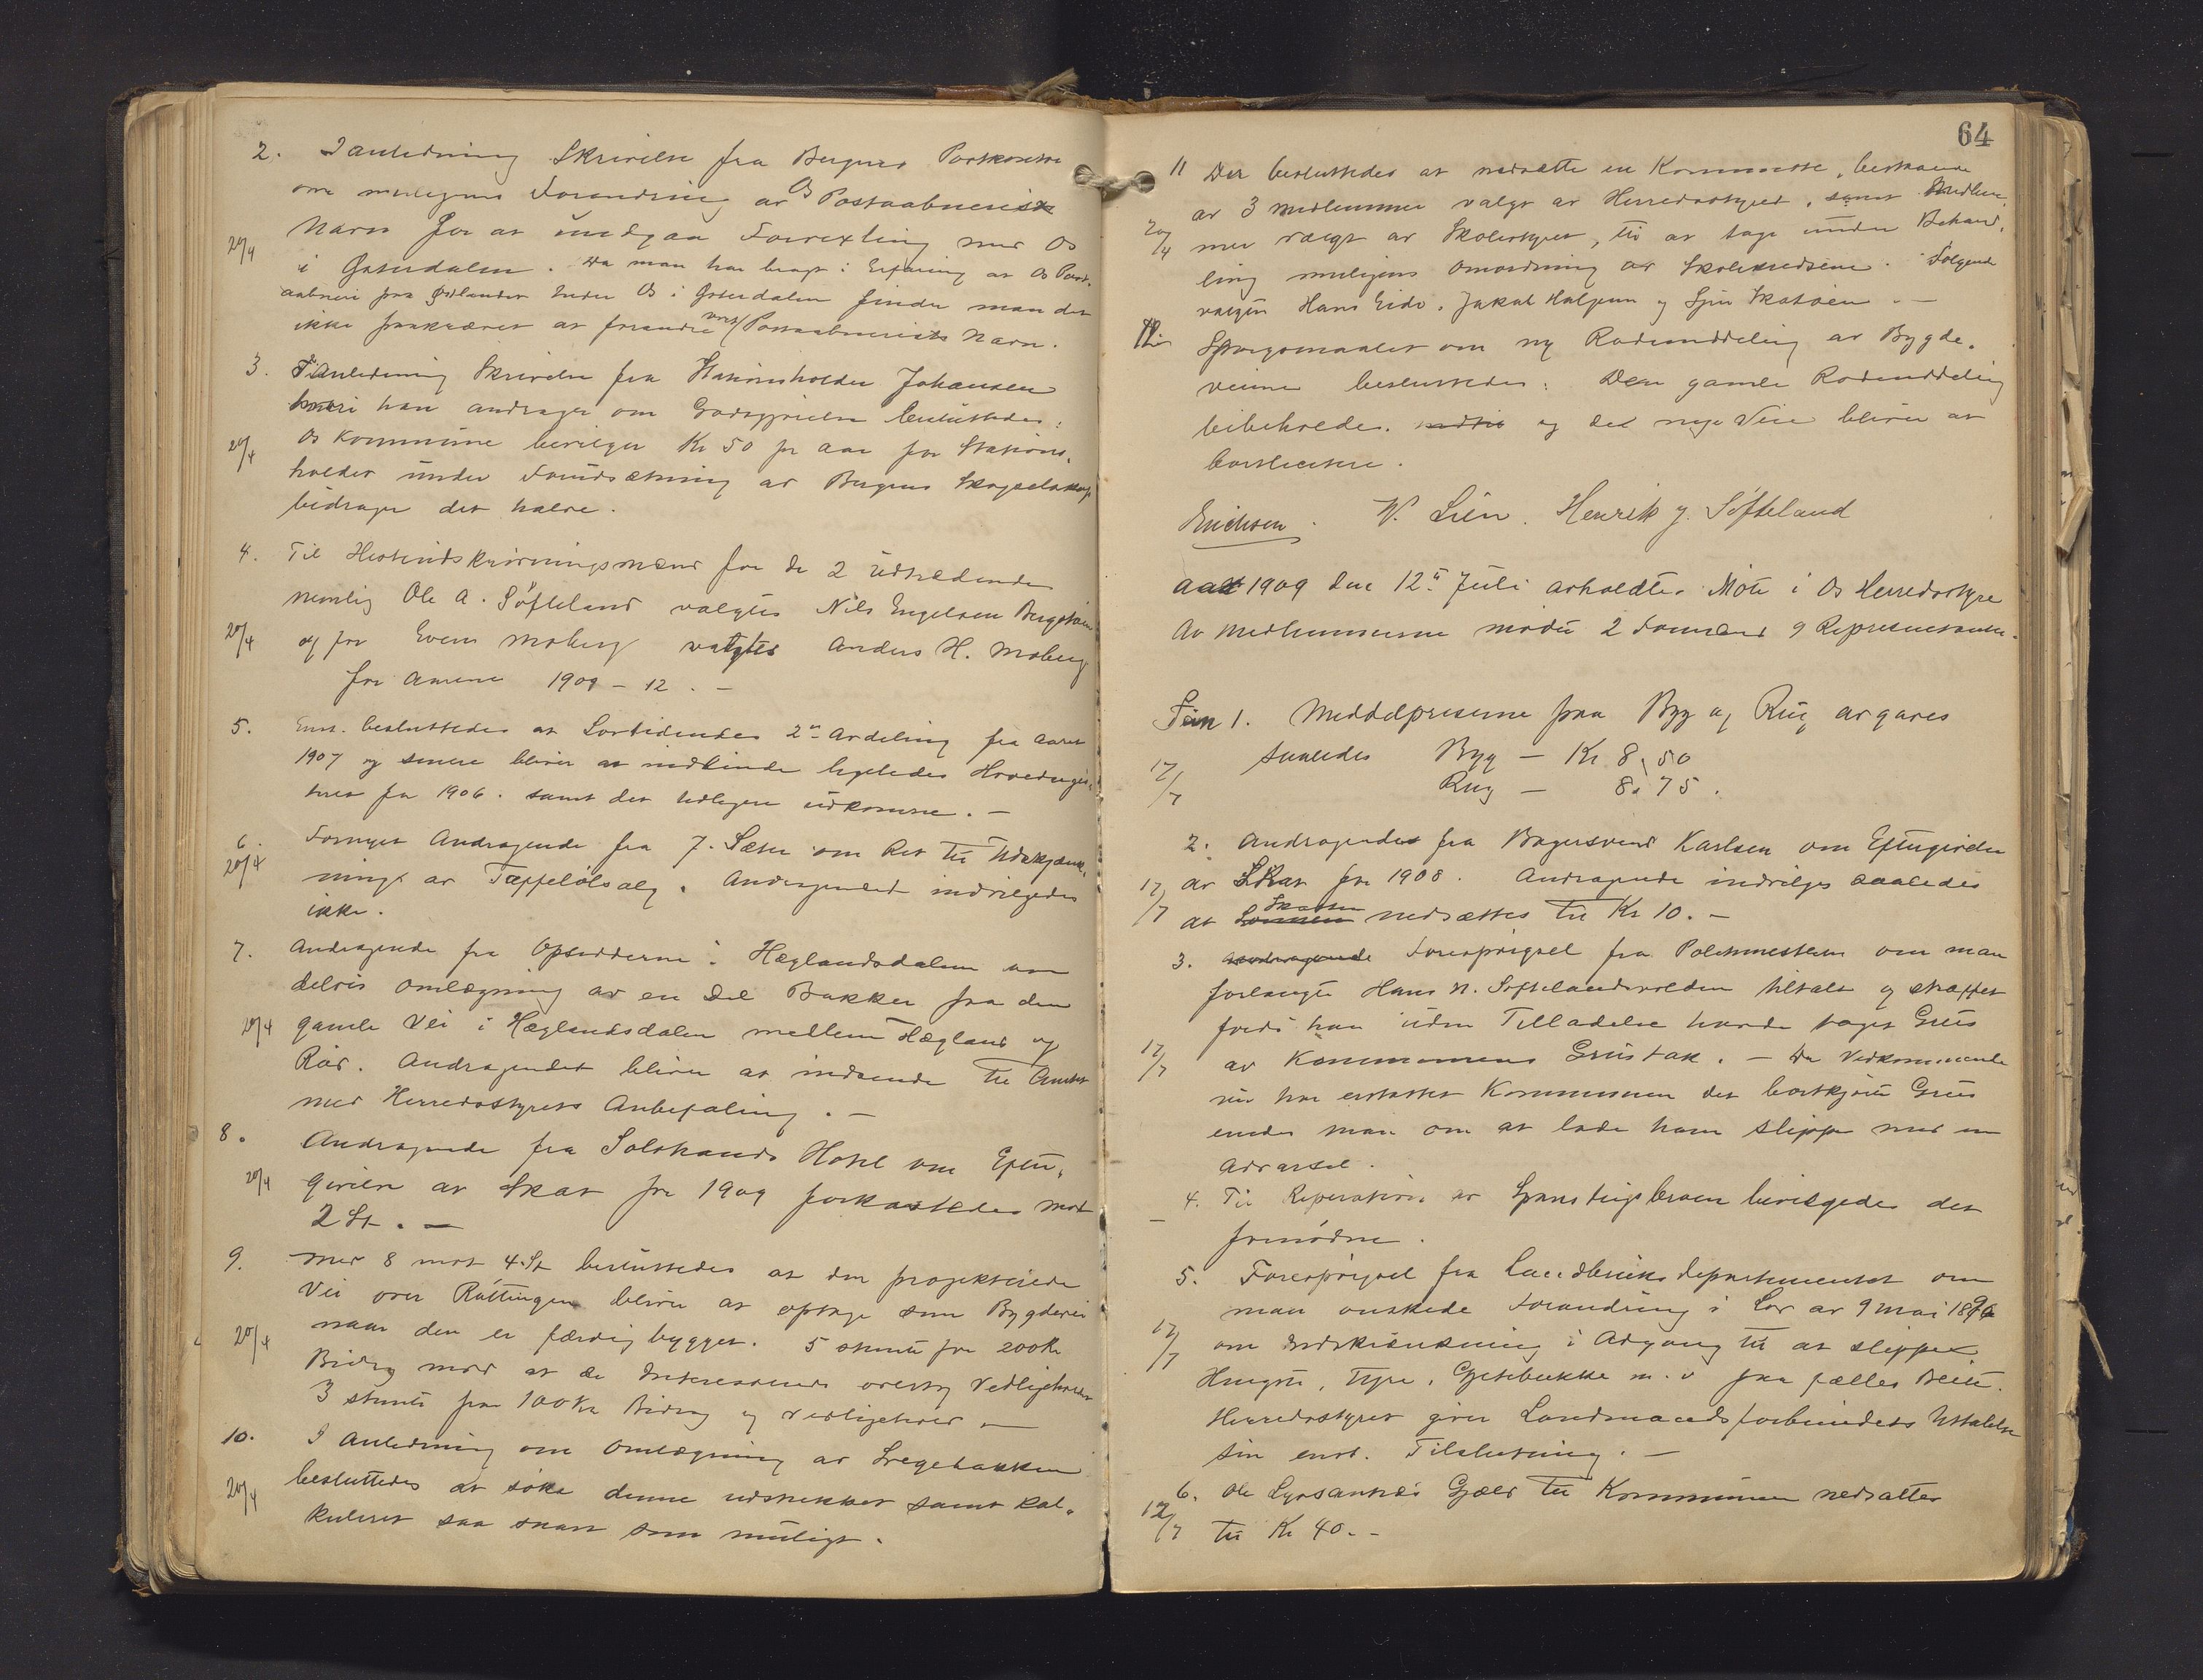 2. I anledning Skrivelse fra Bergens Postkontor
om muligens Forandring av Os Postaabneriets
Navn for at undgaa Forvexling med Os
20/4
i Østerdalen. Da man har bragt i Erfaring at Os Post-
aabneri fra Udlandet heder Os i Østerdalen finder man det
ikke paakrævet at forandre vort Postaabneriets Navn.
3. I Anledning Skrivelse fra Stationsholder Johansen
hvori han andrager om Godtgjørelse besluttedes:
Os Kommune bevilger Kr 50 pr aar for Stations-
20/4
holder under Forudsætning av Bergens Skogselskap
bidrager det halve.
4. Til Hesteudskrivningsmænd for de 2 udtrædende
nemlig Ole A. Søfteland valgtes Nils Engelsen Bergstøen
20/4
og for Evens Moberg valgtes Anders H. Moberg
for Aarene 1909 – 12. –
5. Enst. besluttedes at Lovtidendes 2den Avdeling fra Aaret
1907 og senere bliver at indbinde ligeledes Hovedregis-
teret fra 1906. samt det tidligere udkomne. –
6. Fornyet Andragende fra J. Sæter om Ret til Udskjænk-
20/4
ning av Tappeølsalg. Andragendet indvilgedes
ikke.
7. Andragende fra Opsidderne i Hæglandsdalen om
delvis Omlægning av en Del Bakker fra den
20/4 gamle Vei i Hæglandsdalen mellem Hægland og
Råd. Andragendet bliver at indsende til Amtet
med Herredsstyrets Anbefaling. –
8. Andragende fra Solstrands Hotel om Efter-
20/4
givelse av Skat for 1909 forkastedes mot
2 St. –
9. Med 8 mot 4 St besluttedes at den projekterede
Vei over Røttingen bliver at optage som Bygdevei
20/4
naar den er færdig bygget. 5 stemte for 200 Kr
Bidrag mod at de Interesserede overtog Vedligeholdet
3 stemte for 100 Kr Bidrag og vedligehold –
10. I Anledning om Omlægning av Svegebakken
besluttedes at søke denne udstukket samt kal-
20/4
kuleret saa snart som muligt.
64
11 Der besluttedes at nedsætte en Kommitte, bestaaende
av 3 Medlemmer valgt av Herredsstyret, samt Medlem-
20/4
mer valgt av Skolestyret, til at tage under Behand-
ling muligens Omordning av Skolekredsene. Følgende
valgtes Hans Eide, Jakob Haljem og Sjur Skatøen. –
12.
Spørgsmaalet om ny Rodeinddeling av Bygde-
veiene besluttedes: Den gamle Rodeinddeling
bibeholdes. og det nye Veie bliver at
bortlicitere.
Erichsen. N. Lien. Henrik J. Søfteland
Aar 1909 den 12te Juli avholdtes Møte i Os Herredsstyre
Av Medlemmerne mødte 2 Formænd 9 Repræsentanter.
Sein 1. Middelpriserne paa Byg og Rug avgaves
saaledes Byg – Kr 8,50
12/7
Rug – 8,75.
2. Andragendet fra Bagersvend Karlsen om Eftergivelse
av Skat for 1908. Andragende indvilges saaledes
12/7
at Skatten nedsættes til Kr 10. –
3. Forespørgsel fra Politimesteren om man
forlangte Hans N. Søftelandsvolden tiltalt og straffet
fordi han uden Tilladelse havde taget Grus
12/7
av Kommunens Grustak. – Da Vedkommende
nu har erstattet Kommunen det bortkjørte Grus
enedes man om at lade ham slippe med en
Advarsel.
4. Til Reperation av Spanstigsbroen bevilgedes det
fornødne.
5. Forespørgsel fra Landbruksdepartementet om
man ønskede Forandring i Lov av 9 Mai 1896
12/7
om Indskrænkning i Adgang til at slippe
Hingste, Tyre, Gjetebukke m. v paa fælles Beite.
Herredsstyret giver Landmandsforbundets Uttalelse
sin enst. Tilslutning. –
6. Ole Lyssandes Gjæld til Kommunen nedsattes
12/7
til Kr 40. –